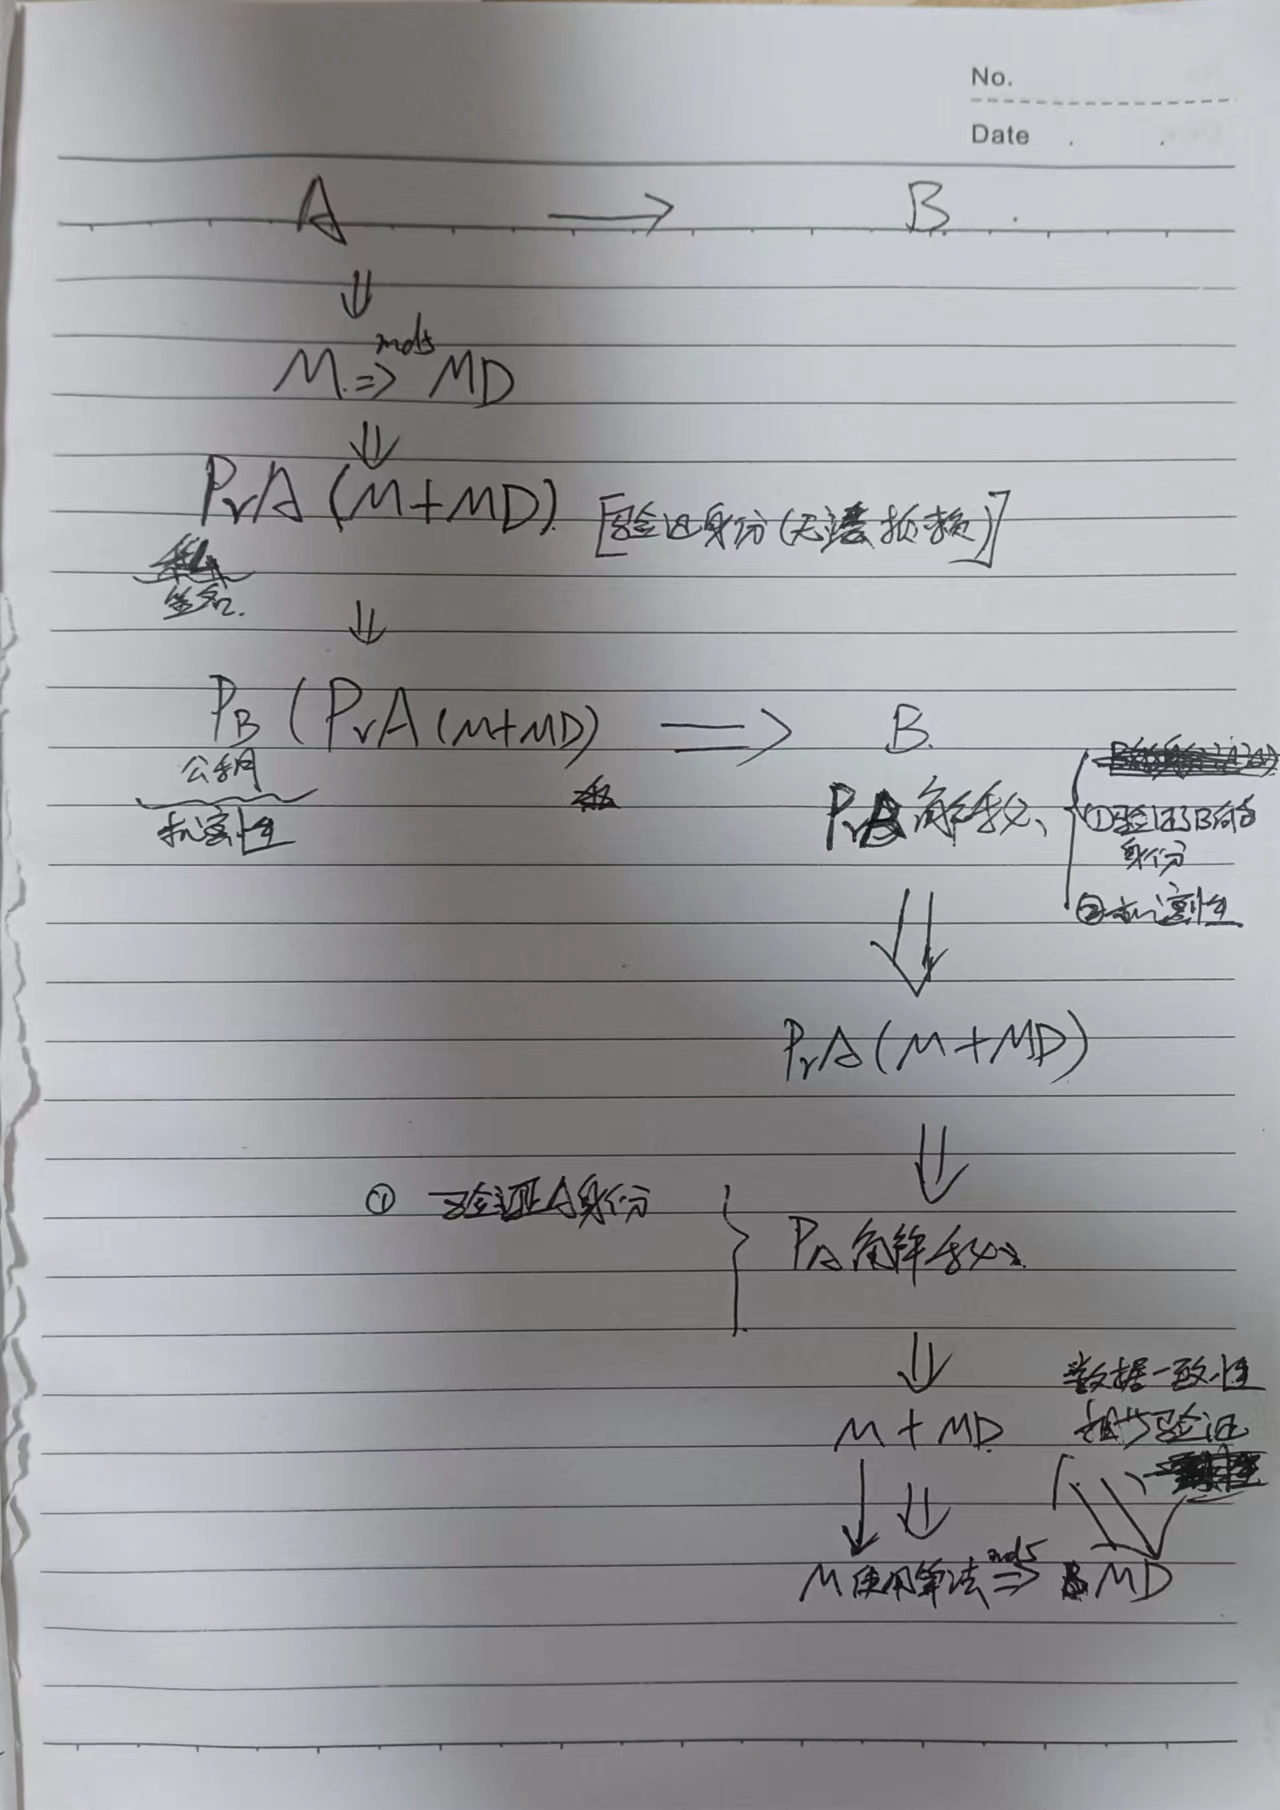 No.
Date
A → B
⇓
M ⇒ md5 MD
⇓
PrA (M+MD) [验证身份(无法抵赖)]
签名.
⇓
PB (PrA (M+MD) ⇒ B.
公钥
机密性
PrB 解秘、
①验证B的
身份
②机密性
⇓
PrA (M+MD)
⇓
① 验证A身份
PA 解秘
⇓
M + MD
数据一致性
验证
↓ ⇓
M 使用算法 md5 ⇒ MD